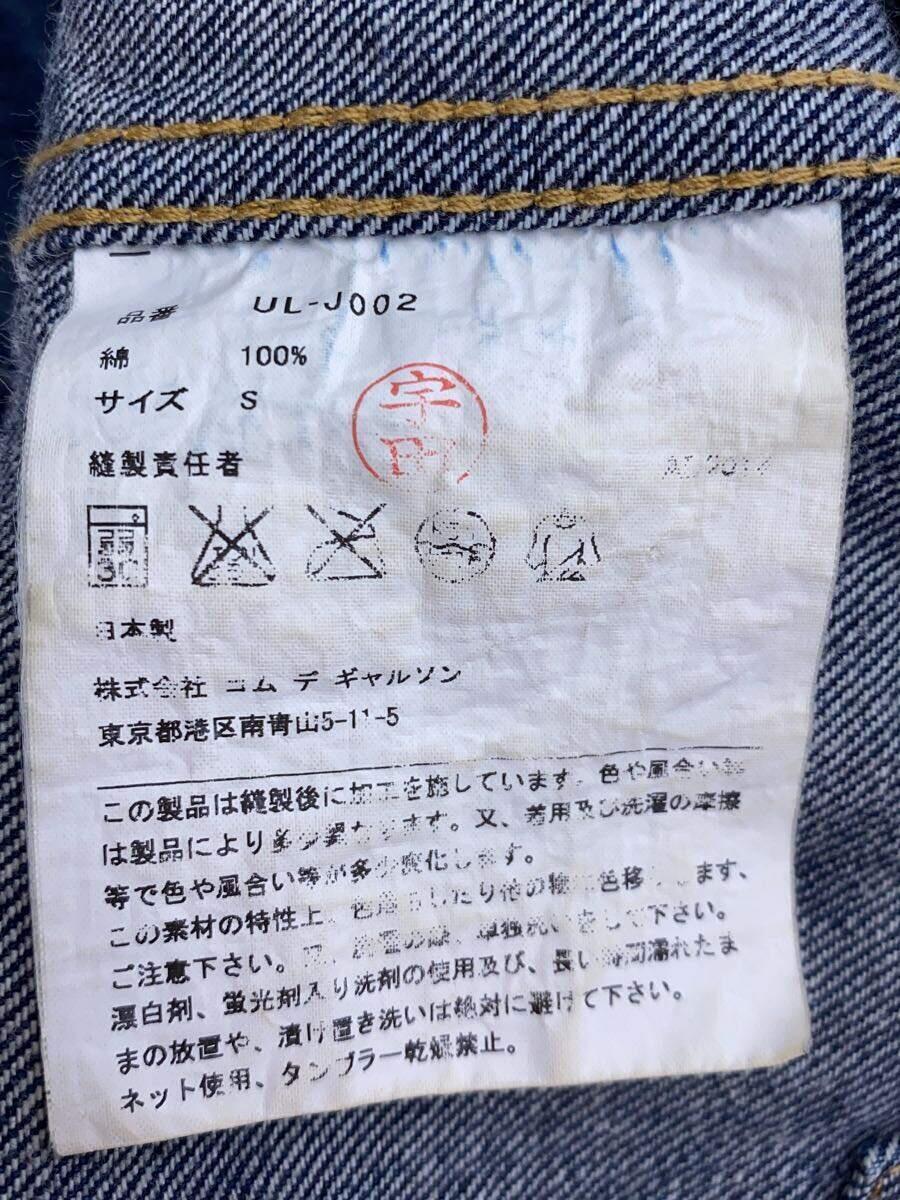 品番 UL-J002
綿 100%
サイズ S
縫製責任者
弱
30
日本製
株式会社 コム デ ギャルソン
東京都港区南青山5-11-5
この製品は縫製後に加工を施しています。色や風合い等
は製品により多少異なります。又、着用及び洗濯の摩擦
等で色や風合い等が多少変化します。
この素材の特性上、色落ちしたり他の物に色移りします、
ご注意下さい。又、洗濯の際、単独洗いをして下さい。
漂白剤、蛍光剤入り洗剤の使用及び、長い時間濡れたま
まの放置や、漬け置き洗いは絶対に避けて下さい。
ネット使用、タンブラー乾燥禁止。